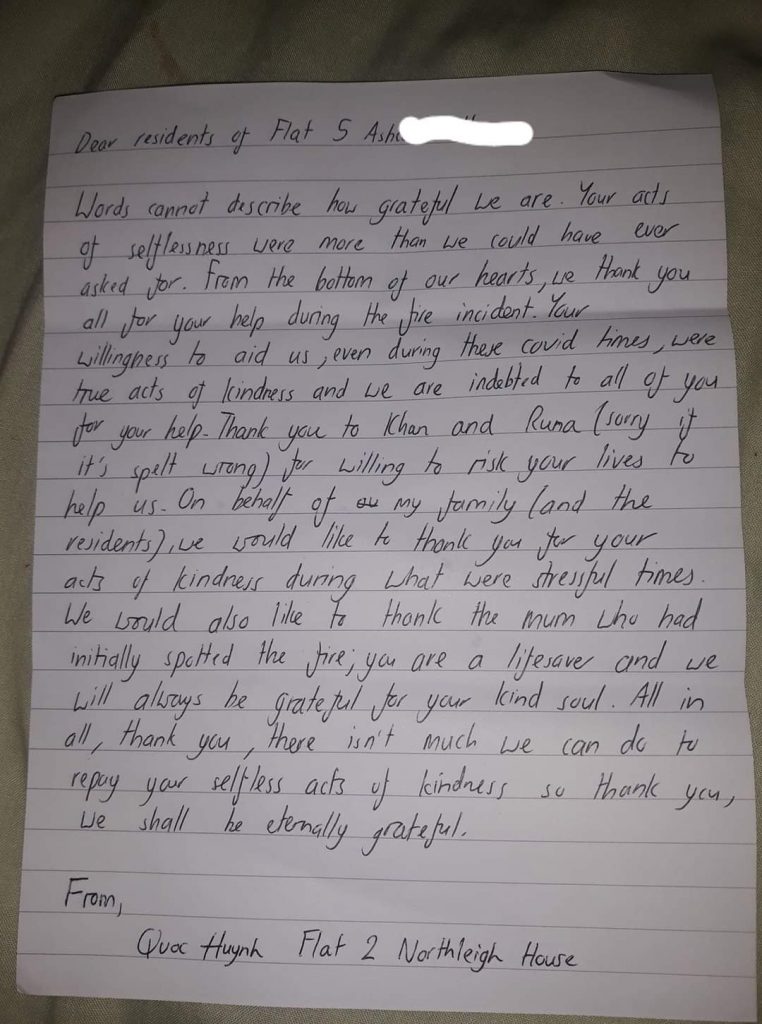 Dear residents of Flat 5 Ash
Words cannot describe how grateful we are. Your acts
of selflessness were more than we could have ever
asked for. From the bottom of our hearts, we thank you
all for your help during the fire incident. Your
willingness to aid us, even during these covid times, were
true acts of kindness and we are indebted to all of you
for your help. Thank you to Khan and Runa (sorry if
it's spelt wrong) for willing to risk your lives to
help us. On behalf of my family (and the
residents), we would like to thank you for your
acts of kindness during what were stressful times.
We would also like to thank the mum who had
initially spotted the fire; you are a lifesaver and we
will always be grateful for your kind soul. All in
all, thank you, there isn't much we can do to
repay your selfless acts of kindness so thank you,
we shall be eternally grateful.
From,
Quoc Huynh Flat 2 Northleigh House